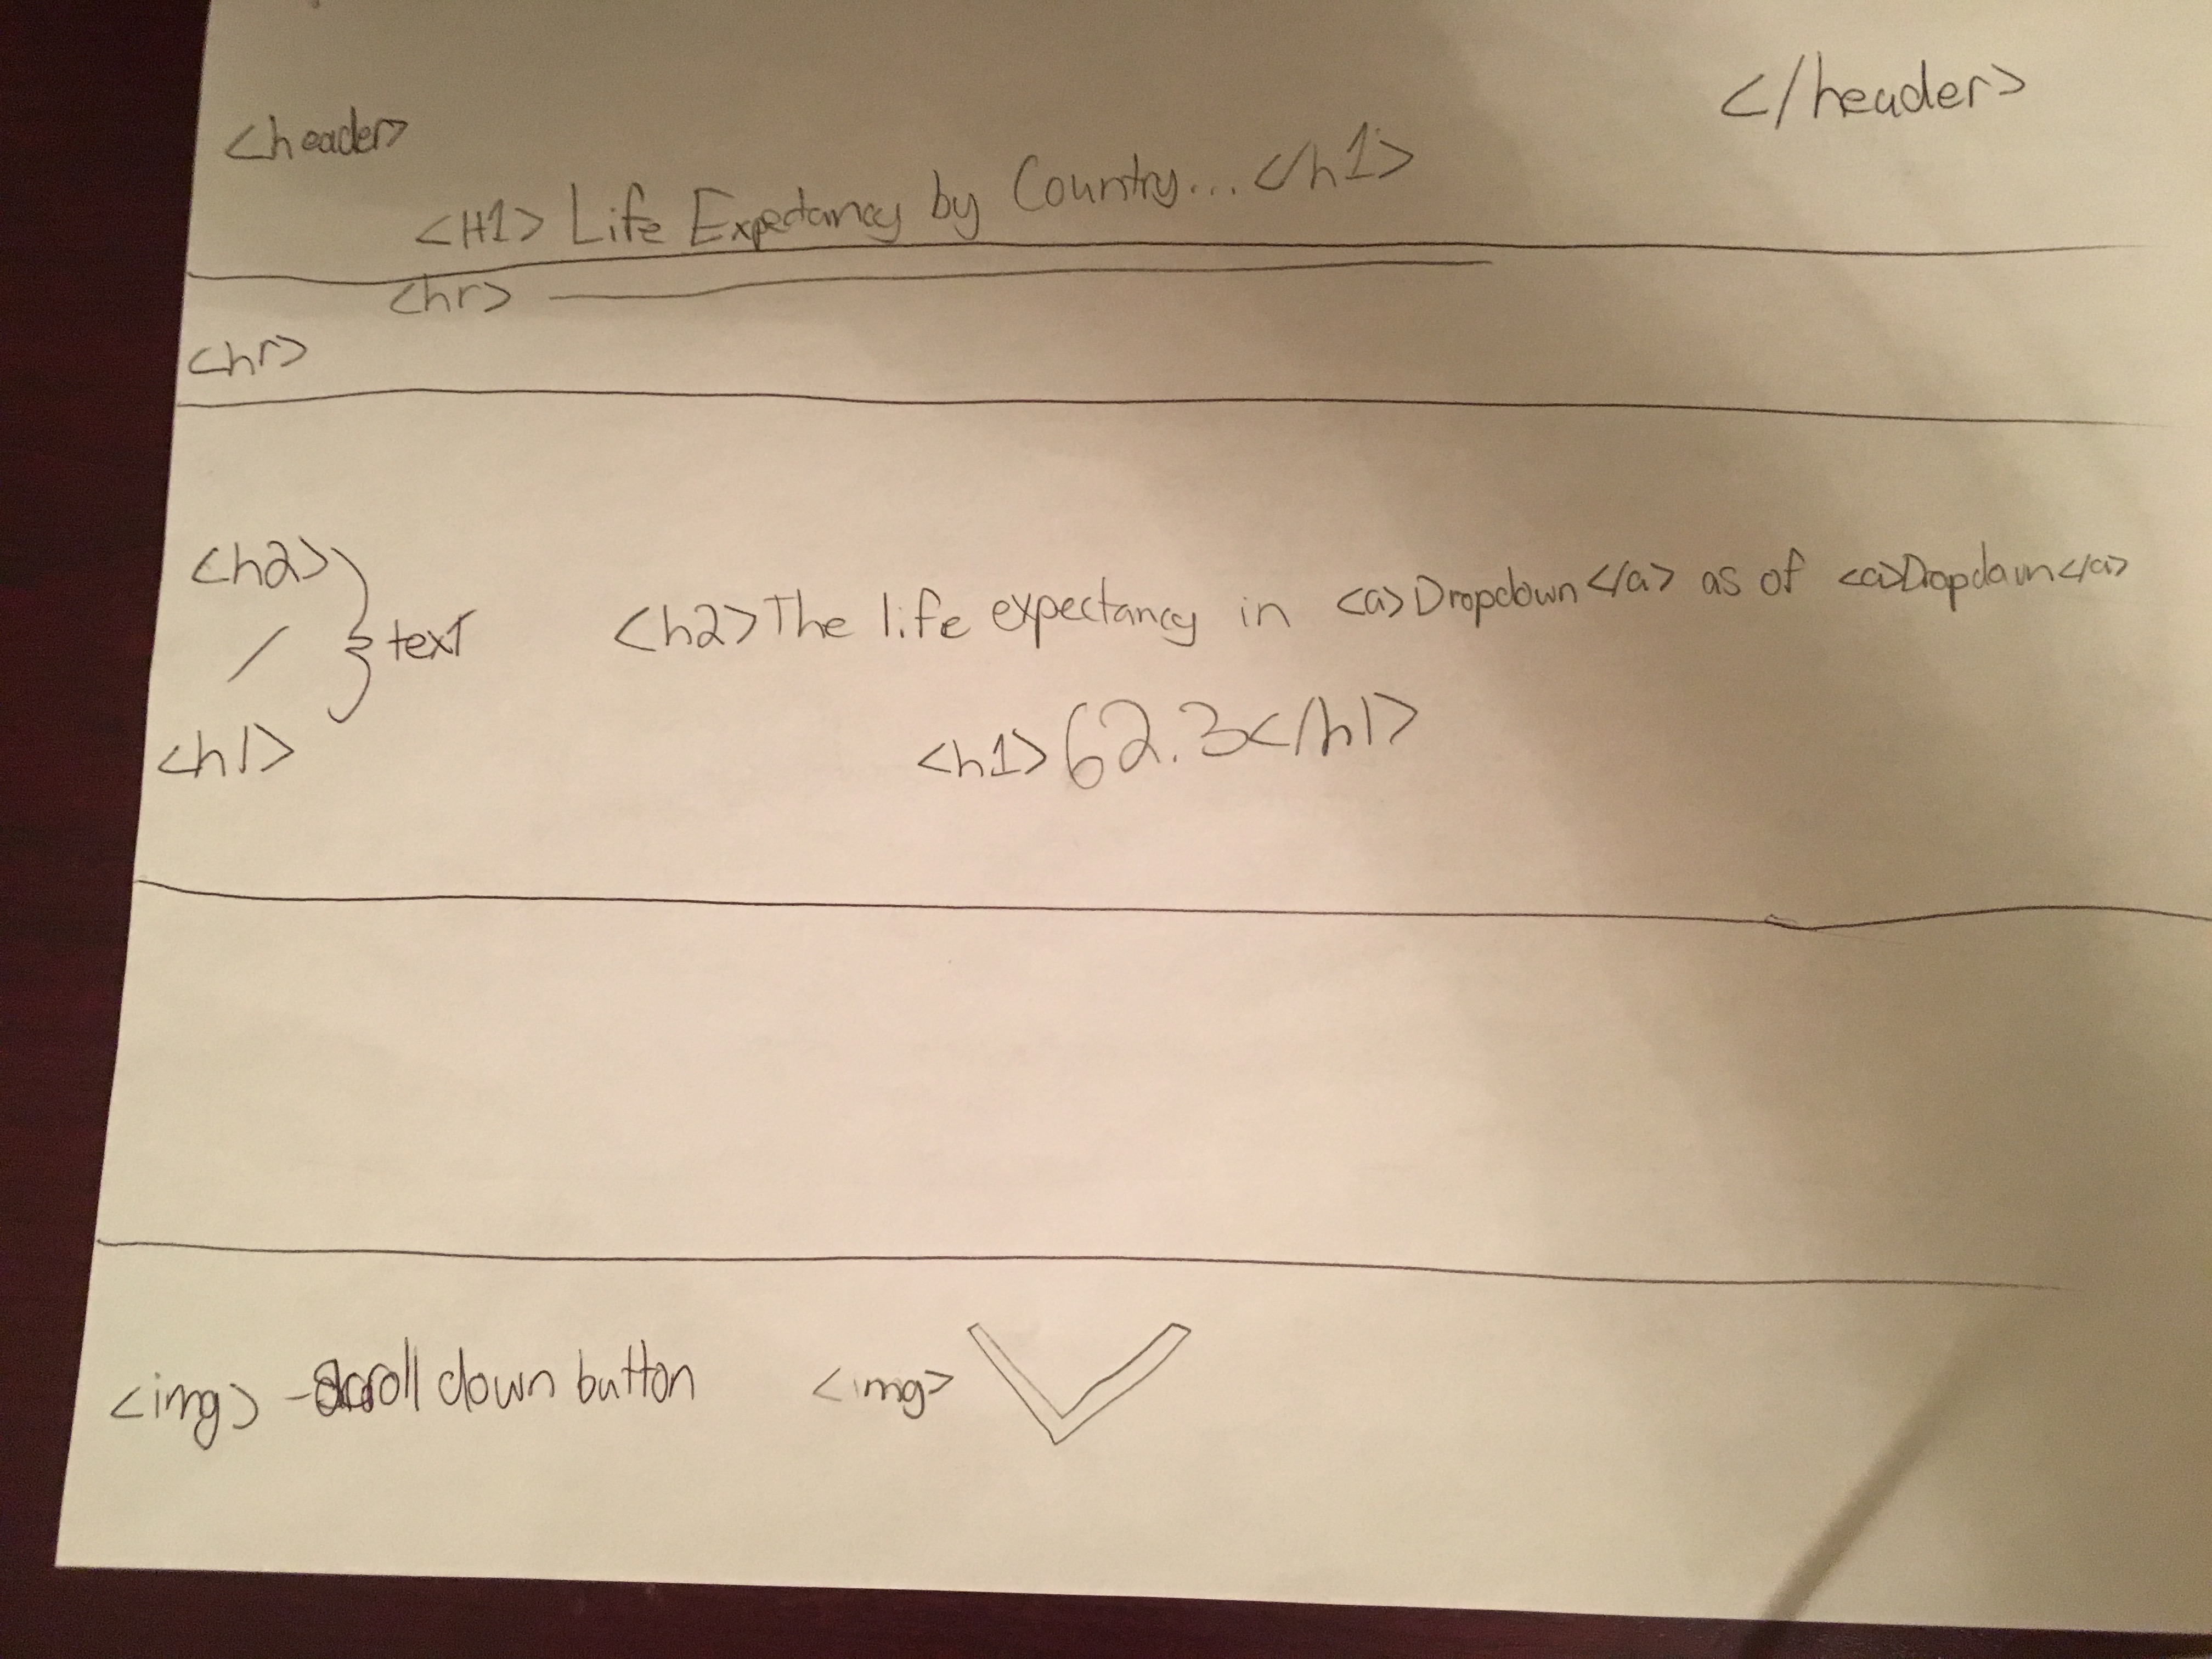 <header> </header>
<H1> Life Expectancy by Country... </h1>
<hr> <hr>
<h2>
/ } text
<h1>
<h2>The life expectancy in <a>Dropdown</a> as of <a>Dropdown</a>
<h1>62.3</h1>
<img> - scroll down button <img>